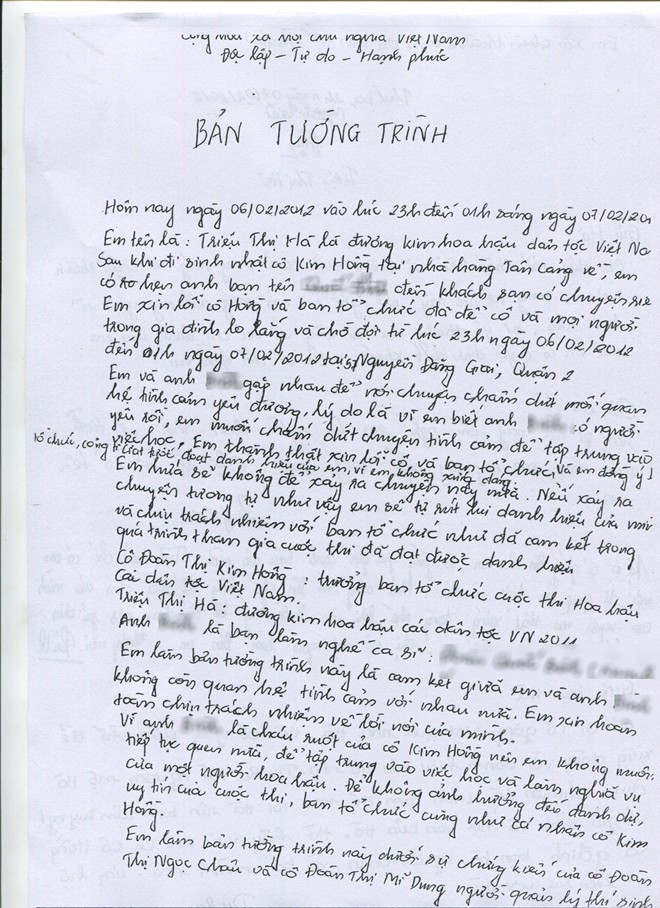 Cộng hòa xã hội chủ nghĩa Việt Nam
Độc lập - Tự do - Hạnh phúc
BẢN TƯỜNG TRÌNH
Hôm nay ngày 06/02/2012 vào lúc 23h đến 01h sáng ngày 07/02/201
Em tên là: Triệu Thị Hà là đương kim hoa hậu dân tộc Việt Na
Sau khi đi sinh nhật cô Kim Hồng tại nhà hàng Tân Cảng về, em
có hẹn anh bạn tên đến khách sạn có chuyện
Em xin lỗi cô Hồng và ban tổ chức đã để cô và mọi người
trong gia đình lo lắng và chờ đợi từ lúc 23h ngày 06/02/2012
đến 01h ngày 07/02/2012 tại Nguyễn Đăng Giai, Quận 2
Em và anh gặp nhau để nói chuyện chấm dứt mối quan
hệ tình cảm yêu đương, lý do là vì em biết anh có người
yêu rồi, em muốn chấm dứt chuyện tình cảm để tập trung vào
việc học, Em thành thật xin lỗi cô và ban tổ chức, Và em đồng ý
tổ chức, công ty tước đoạt danh hiệu của em, vì em không xứng đáng.
Em hứa sẽ không để xảy ra chuyện này nữa. Nếu xảy ra
chuyện tương tự như vậy em sẽ tự rút lui danh hiệu của mình
và chịu trách nhiệm với ban tổ chức như đã cam kết trong
quá trình tham gia cuộc thi đã đạt được danh hiệu
Cô Đoàn Thị Kim Hồng : trưởng ban tổ chức cuộc thi Hoa hậu
các dân tộc Việt Nam.
Triệu Thị Hà: đương kim hoa hậu các dân tộc VN 2011
Anh là bạn làm nghề ca sĩ:
Em làm bản tường trình này là cam kết giữa em và anh
không còn quan hệ tình cảm với nhau nữa. Em xin hoàn
toàn chịu trách nhiệm về lời nói của mình.
Vì anh là cháu ruột của cô Kim Hồng nên em không muốn
tiếp tục quen nữa, để tập trung vào việc học và làm nghĩa vụ
của một người hoa hậu. Để không ảnh hưởng đến danh dự,
uy tín của cuộc thi, ban tổ chức cũng như cá nhân cô Kim
Hồng.
Em làm bản tường trình này dưới sự chứng kiến của cô Đoàn
Thị Ngọc Châu và cô Đoàn Thị Mĩ Dung người quản lý thí sinh